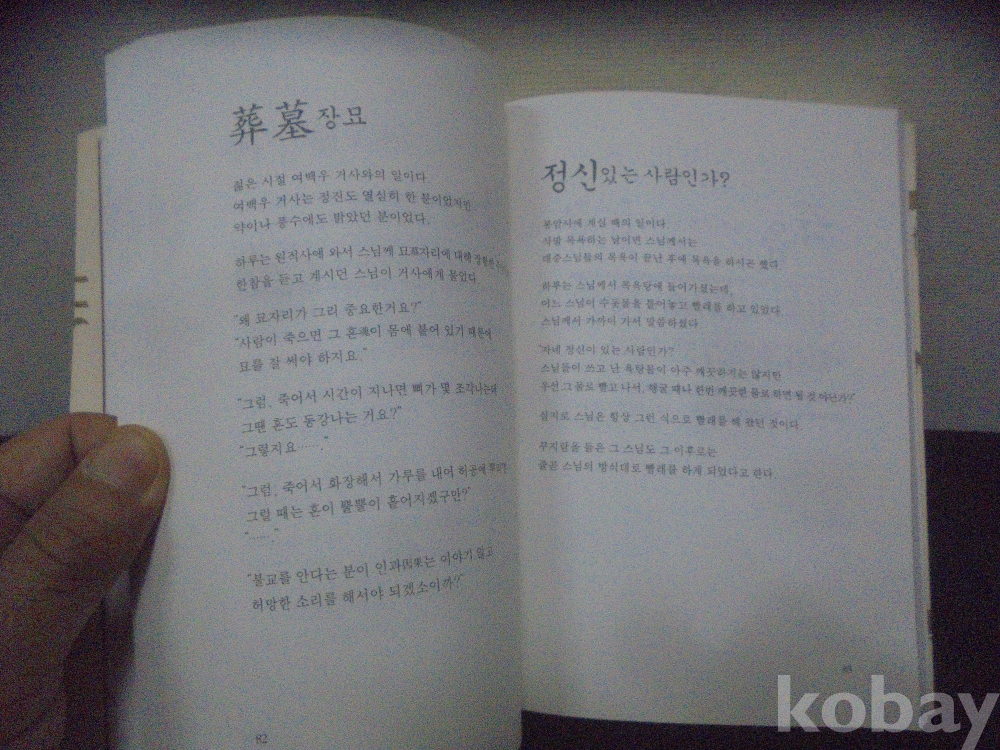 葬墓장묘
젊은 시절 여백우 거사와의 일이다
여백우 거사는 정진도 열심히 한 분이었지만
약이나 풍수에도 밝았던 분이었다.
하루는 원적사에 와서 스님께 묘자리에 대해
한참을 듣고 계시던 스님이 거사에게 물었다.
"왜 묘자리가 그리 중요한거요?"
"사람이 죽으면 그 혼魂이 몸에 붙어 있기 때문에
묘를 잘 써야 하지요."
"그럼, 죽어서 시간이 지나면 뼈가 몇 조각나는데
그땐 혼도 동강나는 거요?"
"그렇지요……."
"그럼, 죽어서 화장해서 가루를 내어 허공에
그럴 때는 혼이 뿔뿔이 흩어지겠구만?"
"……."
"불교를 안다는 분이 인과因果는 이야기 않고
허망한 소리를 해서야 되겠소이까?"
82
정신있는 사람인가?
봉암사에 계실 때의 일이다
삭발 목욕하는 날이면 스님께서는
대중스님들의 목욕이 끝난 후에 목욕을 하시곤 했다.
하루는 스님께서 목욕탕에 들어가셨는데,
어느 스님이 수돗물을 틀어놓고 빨래를 하고 있었다.
스님께서 가까이 가서 말씀하셨다
"자네 정신이 있는 사람인가?
스님들이 쓰고 난 욕탕물이 아주 깨끗하지는 않지만
우선 그 물로 빨고 나서, 헹굴 때나 한번 깨끗한 물로 하면 될 것 아닌가?"
실지로 스님은 항상 그런 식으로 빨래를 해 왔던 것이다
꾸지람을 들은 그 스님도 그 이후로는
줄곧 스님의 방식대로 빨래를 하게 되었다고 한다
kobay